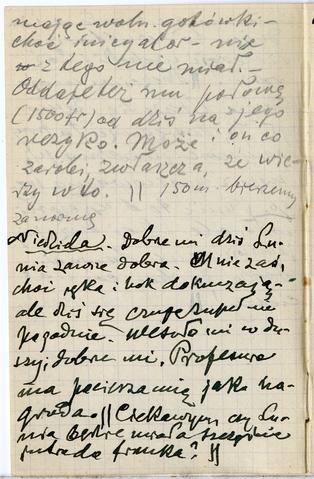 mając woln. gotówki -
choć inicyator - nic
z tego nie miał. -
Oddałem też mu połowę
(1500 fr) od dziś na jego
ryzyko. Może i on co
zarobi, zwłaszcza, że wie-
rzy w to. || 150 m bierzemy
Niedziela. Dobrze mi dziś Lu-
nia zawsze dobra. Mnie zaś,
choć ręka i bok dokuczają -
ale dziś się czuję zupełnie
pogodnie. Wesoło mi w du-
szy, dobrze mi. Profesura
ma pocieszać mię jako na-
groda. || Ciekawym, czy Lu-
nia będzie miała szczęście
franka? ||